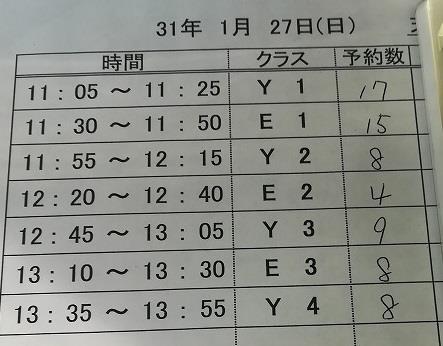 31年 1月 27日(日)
時間 クラス 予約数
11：05 ～ 11：25 Y 1 17
11：30 ～ 11：50 E 1 15
11：55 ～ 12：15 Y 2 8
12：20 ～ 12：40 E 2 4
12：45 ～ 13：05 Y 3 9
13：10 ～ 13：30 E 3 8
13：35 ～ 13：55 Y 4 8